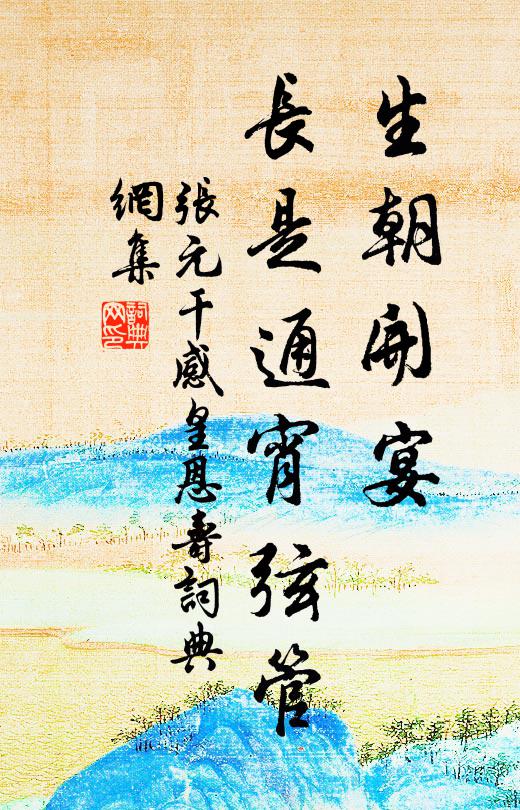 生朝開宴
長是通宵弦管
張元干感皇恩壽詞典
網集
詞典
网印